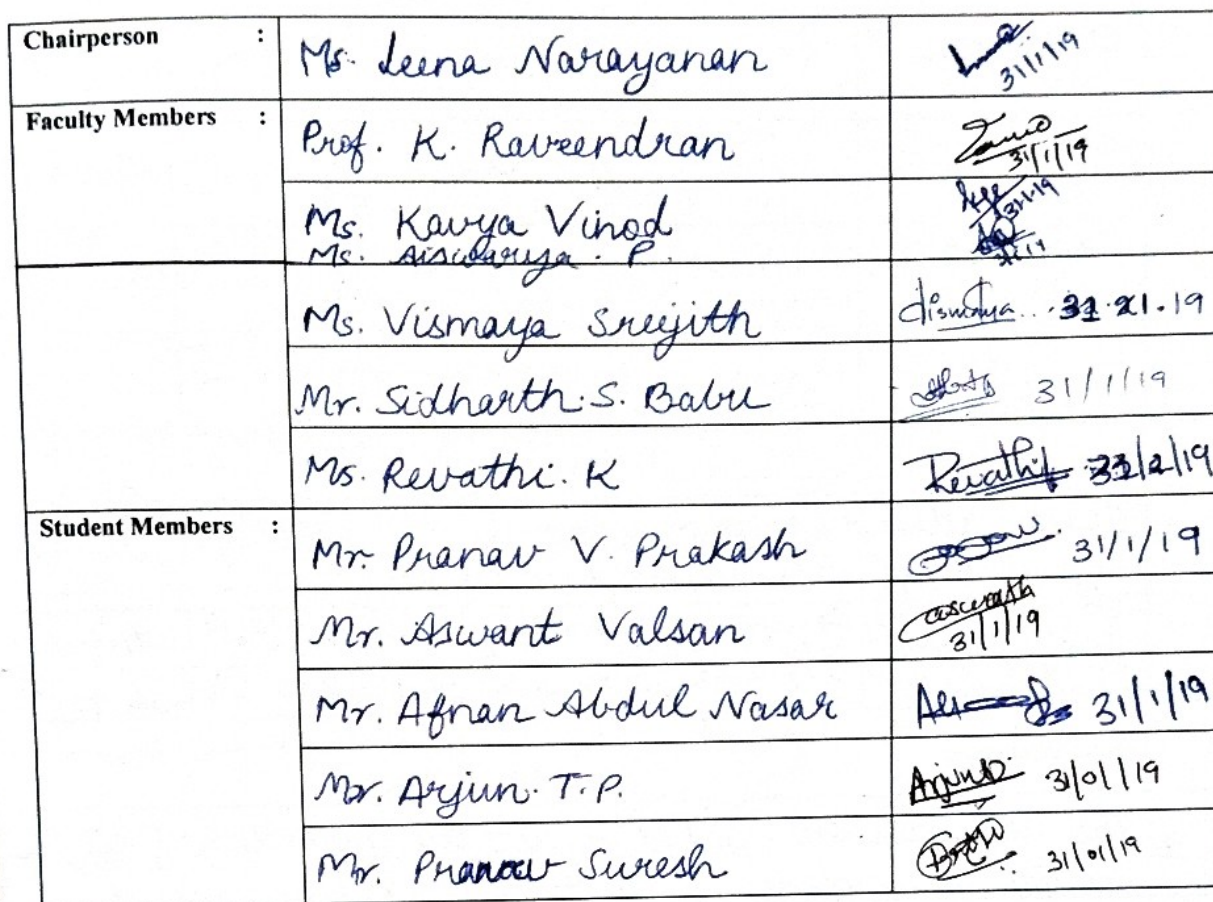 Chairperson : Ms. Leena Narayanan 31/1/19
Faculty Members : Prof. K. Raveendran 31/1/19
Ms. Kavya Vinod 31-1-19
Ms. Aiswarya. P.
Ms. Vismaya Sreejith
Mr. Sidharth. S. Babu 31/1/19
Ms. Revathi. K Revathi
Student Members : Mr. Pranav V. Prakash 31/1/19
Mr. Aswant Valsan 31/1/19
Mr. Afnan Abdul Nasar 31/1/19
Mr. Arjun. T.P. 31/01/19
Mr. Pranav Suresh 31/01/19